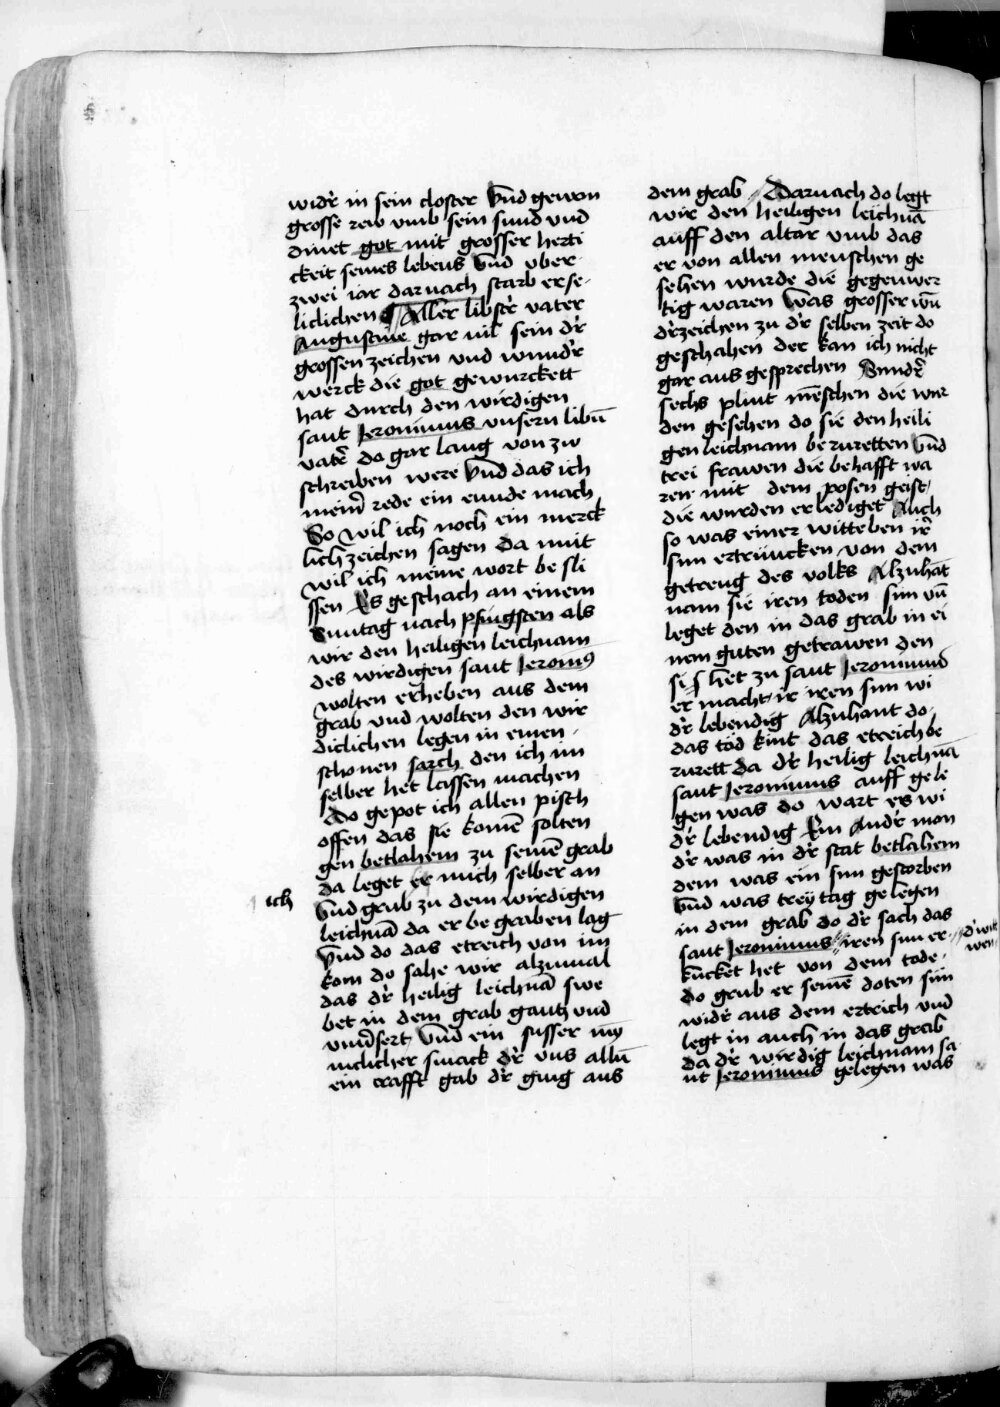 widr̄ in sein closter Vnd gewon
grosse rew vmb sein sund vnd
dinet got mit grosser herti
ckeit seines lebens Vnd vber
zwei iar darnach starb er se-
liclichen Aller libstr̄ vater
Augustine gar vil sein dr̄
grossen zeichen vnd wundr̄
werck die got gewurckett
hat durch den wirdigen
sant Jeronimus vnsern libn̄
vatr̄ do gar lang von zw
schreiben were Vnd das ich
meinr̄ rede ein ennde mach
So wil ich noch ein merck
lich zeichen sagen da mit
wil ich meine wort be sli
ssen Es geschach an einem
Suntag nach pfingsten als
wir den heiligen leichnam
des wirdigen sant Jeronimꝰ
wolten erheben aus dem
grab vnd wolten den wir
diclichen legen in einen
schonen sarch den ich im
selber het lassen machen
Do gepot ich allen pisch
offen das sie komē solten
gen betlahem zu seinē grab
da leget er mich selber an
ich
Vnd grub zu dem wirdigen
leichnā da er be graben lag
Vnd do das etreich von im
kom do sahe wir alzumal
das dr̄ heilig leichnā swe
bet in dem grab gantz vnd
vnuersert Vnd ein susser my
niclicher smack dr̄ vns alln̄
ein crafft gab dr̄ ging aus
dem grab Darnach do legt
wir den heiligen leichnā
auff den altar vmb das
er von allen menschen ge
sehen wurde die gegenwer
tig waren Was grosser wū
dr̄zeichen zu dr̄ selben zeit do
geschahen der kan ich nicht
gar aus gesprechen Sundr̄
sechs plint mēschen die wur
den gesehen do sie den heili
gen leichnam be ruretten Vnd
trei frawen die behafft wa
ren mit dem posen geist
die wurden erlediget Auch
so was einer witteben ir̄
sun ertruncken von dem
getreng des volks Alzuhāt
nam sie iren toden sun vn̄
leget den in das grab in ei
nem guten getrawen den
si het zu sant Jeronimus
er macht ir iren sun wi
dr̄ lebendig Alzuhant do
das tod kint das etreich be
rurett da dr̄ heilig leichnā
sant Jeronimus auff gele
gen was do wart es wi
dr̄ lebendig Ein Andr̄ mon
dr̄ was in dr̄ stat betlahem
dem was ein sun gestorben
Vnd was trey tag gelegen
in dem grab do dr̄ sach das
sant Jeronimus iren sun er
kucket het von dem tode
do grub er seinē doten sun
widr̄ aus dem ertrich vnd
legt in auch in das grab
da dr̄ wirdig leichnam sa
nt Jeronimus gelegen was